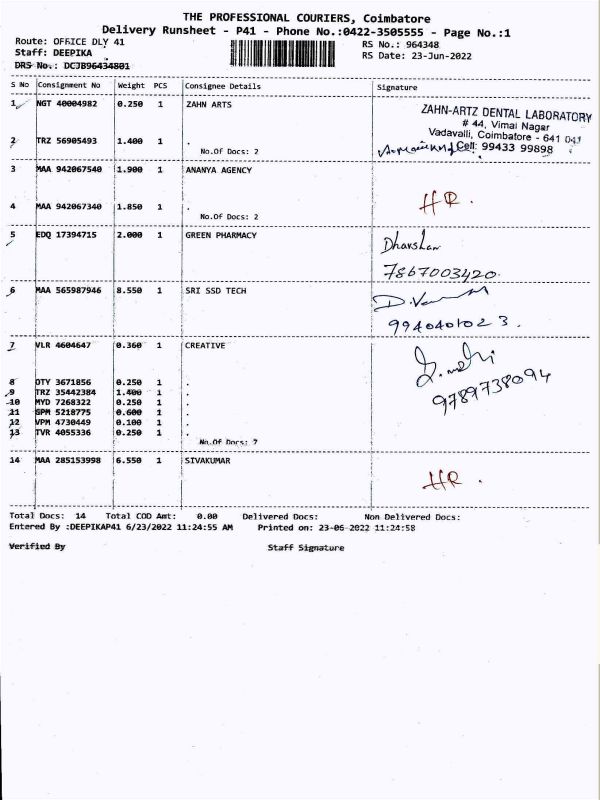 THE PROFESSIONAL COURIERS, Coimbatore
Delivery Runsheet - P41 - Phone No.:0422-3505555 - Page No.:1
Route: OFFICE DLY 41 RS No.: 964348
Staff: DEEPIKA RS Date: 23-Jun-2022
DRS No.: DCJB96434801
S No Consignment No Weight PCS Consignee Details Signature
1 NGT 40004982 0.250 1 ZAHN ARTS
ZAHN-ARTZ DENTAL LABORATORY
# 44, Vimal Nagar
Vadavalli, Coimbatore - 641 041
Cell: 99433 99898
2 TRZ 56905493 1.400 1 .
No.Of Docs: 2
3 MAA 942067540 1.900 1 ANANYA AGENCY
4 MAA 942067340 1.850 1 . HR.
No.Of Docs: 2
5 EDQ 17394715 2.000 1 GREEN PHARMACY Dharshan
7867003420.
6 MAA 565987946 8.550 1 SRI SSD TECH
9940401023.
7 VLR 4604647 0.360 1 CREATIVE
9789738094
8 OTY 3671856 0.250 1 .
9 TRZ 35442384 1.400 1 .
10 MYD 7268322 0.250 1 .
11 GPM 5218775 0.600 1 .
12 VPM 4730449 0.100 1 .
13 TVR 4055336 0.250 1 .
No.Of Docs: 7
14 MAA 285153998 6.550 1 SIVAKUMAR HR.
Total Docs: 14 Total COD Amt: 0.00 Delivered Docs: Non Delivered Docs:
Entered By :DEEPIKAP41 6/23/2022 11:24:55 AM Printed on: 23-06-2022 11:24:58
Verified By Staff Signature